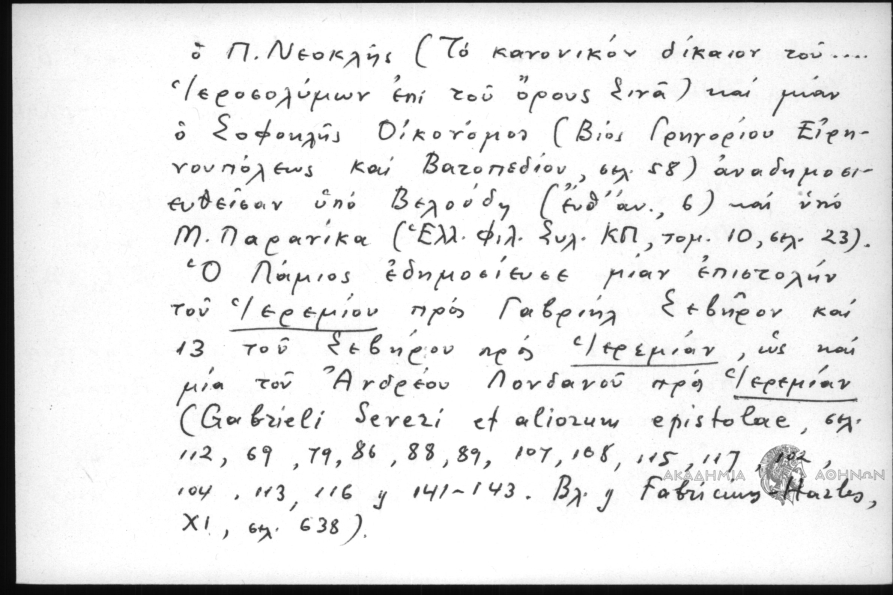 ὁ Π. Νεοκλῆς (Τό κανονικόν δίκαιον τοῦ ....
Ἱεροσολύμων ἐπί τοῦ ὄρους Σινᾶ) καί μίαν
ὁ Σοφοκλῆς Οἰκονόμος (Βίος Γρηγορίου Εἰρη-
νουπόλεως καί Βατοπεδίου, σελ. 58) ἀναδημοσι-
ευθεῖσαν ὑπό Βελούδη (ἔνθ' ἀν., 6) καί ὑπό
Μ. Παρανίκα (Ἑλλ. Φιλ. Συλ. ΚΠ, τομ. 10, σελ. 23).
Ὁ Λάμιος ἐδημοσίευσε μίαν ἐπιστολήν
τοῦ Ἱερεμίου πρός Γαβριήλ Σεβῆρον καί
13 τοῦ Σεβήρου πρός Ἱερεμίαν, ὡς καί
μία τοῦ Ἀνδρέου Λονδανοῦ πρός Ἱερεμίαν
(Gabrieli Severi et aliorum epistolae, σελ.
112, 69, 79, 86, 88, 89, 107, 108, 115, 117, 102,
104, 113, 116 y 141-143. Βλ. y Fabricius-Harles,
XI, σελ. 638).
ΑΚΑΔΗΜΙΑ ΑΘΗΝΩΝ